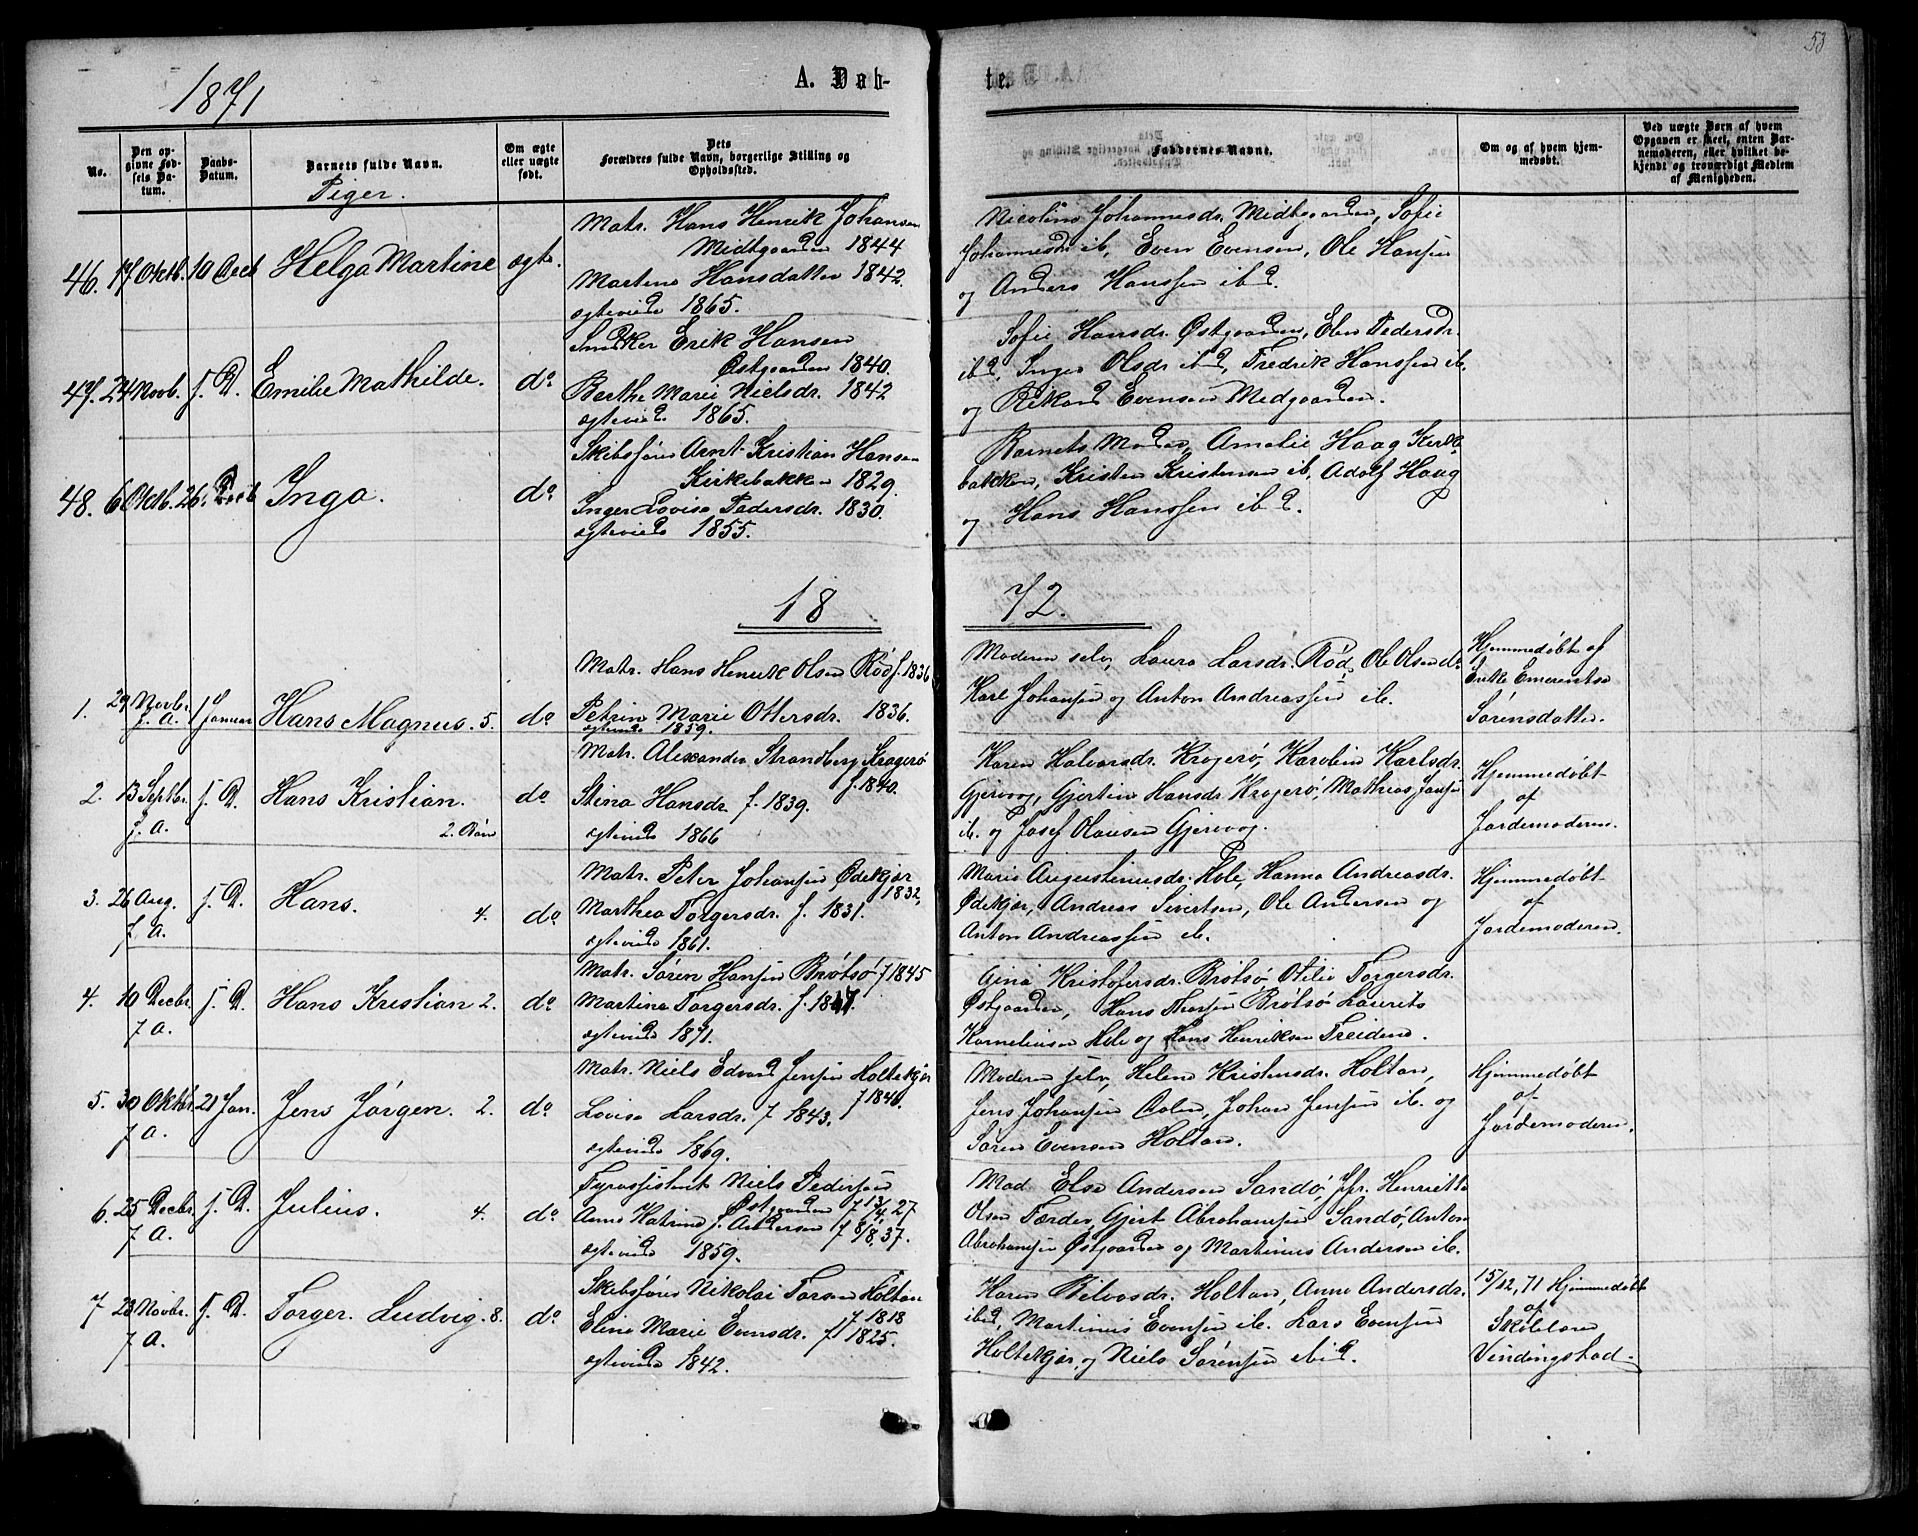 53
1871
A. Døb-
te.
No.
Den op-
givne Fød-
sels Da-
tum.
Daabs-
Datum.
Barnets fulde Navn.
Piger.
Om ægte
eller uægte
født.
Dets
Forældres fulde Navn, borgerlige Stilling og
Opholdssted.
Faddernes Navne.
Om og af hvem hjem-
medøbt.
Ved uægte Børn af hvem
Opgaven er skeet, enten Bar-
nemoderen, eller hvilket be-
kjendt og troværdigt Medlem
af Menigheden.
46. 17 Oktb. 10 Decb Helga Martine ægte.
Matr. Hans Henrik Johansen
Midtgaarden 1844
Martene Hansdatter 1842.
ægteviede 1865.
Nicoline Johannesdr. Midtgaarden, Sofie
Johannesdr ib, Even Evensen, Ole Hansen
og Anders Hanssen ibd.
47. 24 Novb. s. D. Emilie Mathilde. do
Snedker Erik Hansen
Østgaarden 1840.
Berthe Marie Nielsdr. 1842
ægteviede 1865.
Sofie Hansdr. Østgaarden, Elen Pedersdr.
ibd, Inger Olsdr ibd, Fredrik Hanssen ib.
og Rikard Evensen Medgaarden.
48. 6 Oktb. 26. Decb Inga. do
Skibsfører Arnt Kristian Hansen
Kirkebakken 1829.
Inger Lovise Pedersdr. 1830.
ægteviede 1855.
Barnets Moder, Amalie Haag Kirke
bakken, Kristen Kristensen ib, Adolf Haag
og Hans Hanssen ibd.
18 72.
1. 29 Novb. f. A. 1 Januar Hans Magnus. 5. do
Matr. Hans Henrik Olsen Rød f. 1836
Petrin Marie Ottersdr. 1836.
ægteviede 1859.
Moderen selv, Laura Larsdr. Rød, Ole Olsen do
Karl Johansen og Anton Andreassen ib.
Hjemmedøbt af
Enke Emerentse
Sørensdatter.
2. 13 Septbr. f. A. s. D. Hans Kristian. 2. Barn do
Matr. Alexander Strandberg Kragerø
f. 1840.
Stina Hansdr. f. 1839.
ægteviede 1866
Karen Halvorsdr. Kragerø, Karolin Karlsdr.
Gjervog, Gjertin Hansdr Kragerø, Mathias Jansen
ib. og Josef Olausen Gjervog.
Hjemmedøbt
af
Jordemoderen.
3. 26 Aug. f. A. s. D. Hans. 4. do
Matr. Peter Johansen Ødekjær
1832,
Marthea Torgersdr. f. 1831.
ægteviede 1861.
Marie Augustinusdr. Hole, Hanna Andreasdr.
Ødekjær, Andreas Sivertsen, Ole Andersen og
Anton Andreassen ib.
Hjemmedøbt
af
Jordemoderen.
4. 10 Decbr. f A. s. D. Hans Kristian 2. do
Matr. Søren Hansen Brøtsø f 1845
Martina Torgersdr. f. 1847.
ægteviede 1871.
Aina Kristofersdr. Brøtsø, Otilie Torgersdr.
Østgaarden, Hans Thorsen Brøtsø Laurits
Korneliusen Hele og Hans Henriksen Treiden.
5. 30 Oktbr. f A. 21 Jan. Jens Jørgen. 2. do
Matr. Niels Edvard Jensen Holtekjær
f 1840.
Lovise Larsdr. f 1843.
ægteviede 1869.
Moderen selv, Helene Kristensdr. Holtan,
Jens Johansen Dalen, Johan Jensen ib. og
Søren Evensen Holtan.
Hjemmedøbt
af
Jordemoderen.
6. 25 Decbr. f A. s. D. Julius. 4. do
Fyrassistent Niels Pedersen
Østgaarden f 13/4 27
Anne Katrine f. Andersen f 8/8, 37.
ægteviede 1859.
Mad Else Andersen Sandø, Jfr. Henriette
Olsen Færder, Gjert Abrahamsen Sandø, Anton
Abrahamsen Østgaarden og Martinius Andersen ib.
7 23 Novbr. f A. s. D. Torger Ludvig. 8. do
Skibsfører Nikolai Torsen Holtan
f 1818
Eline Marie Evensdr. f 1825.
ægteviede 1842.
Karen Holton, Anne Andersdr.
ibd, Martinius Evensen ib. Lars Evensen
Holtekjær, og Niels Sørensen ibid.
15/12, 71 Hjemmedøbt
af
Skolelærer
Vindingstad.